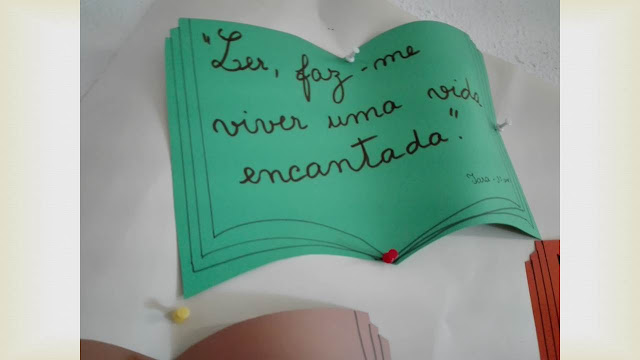 "Ler, faz-me
viver uma vida
encantada".